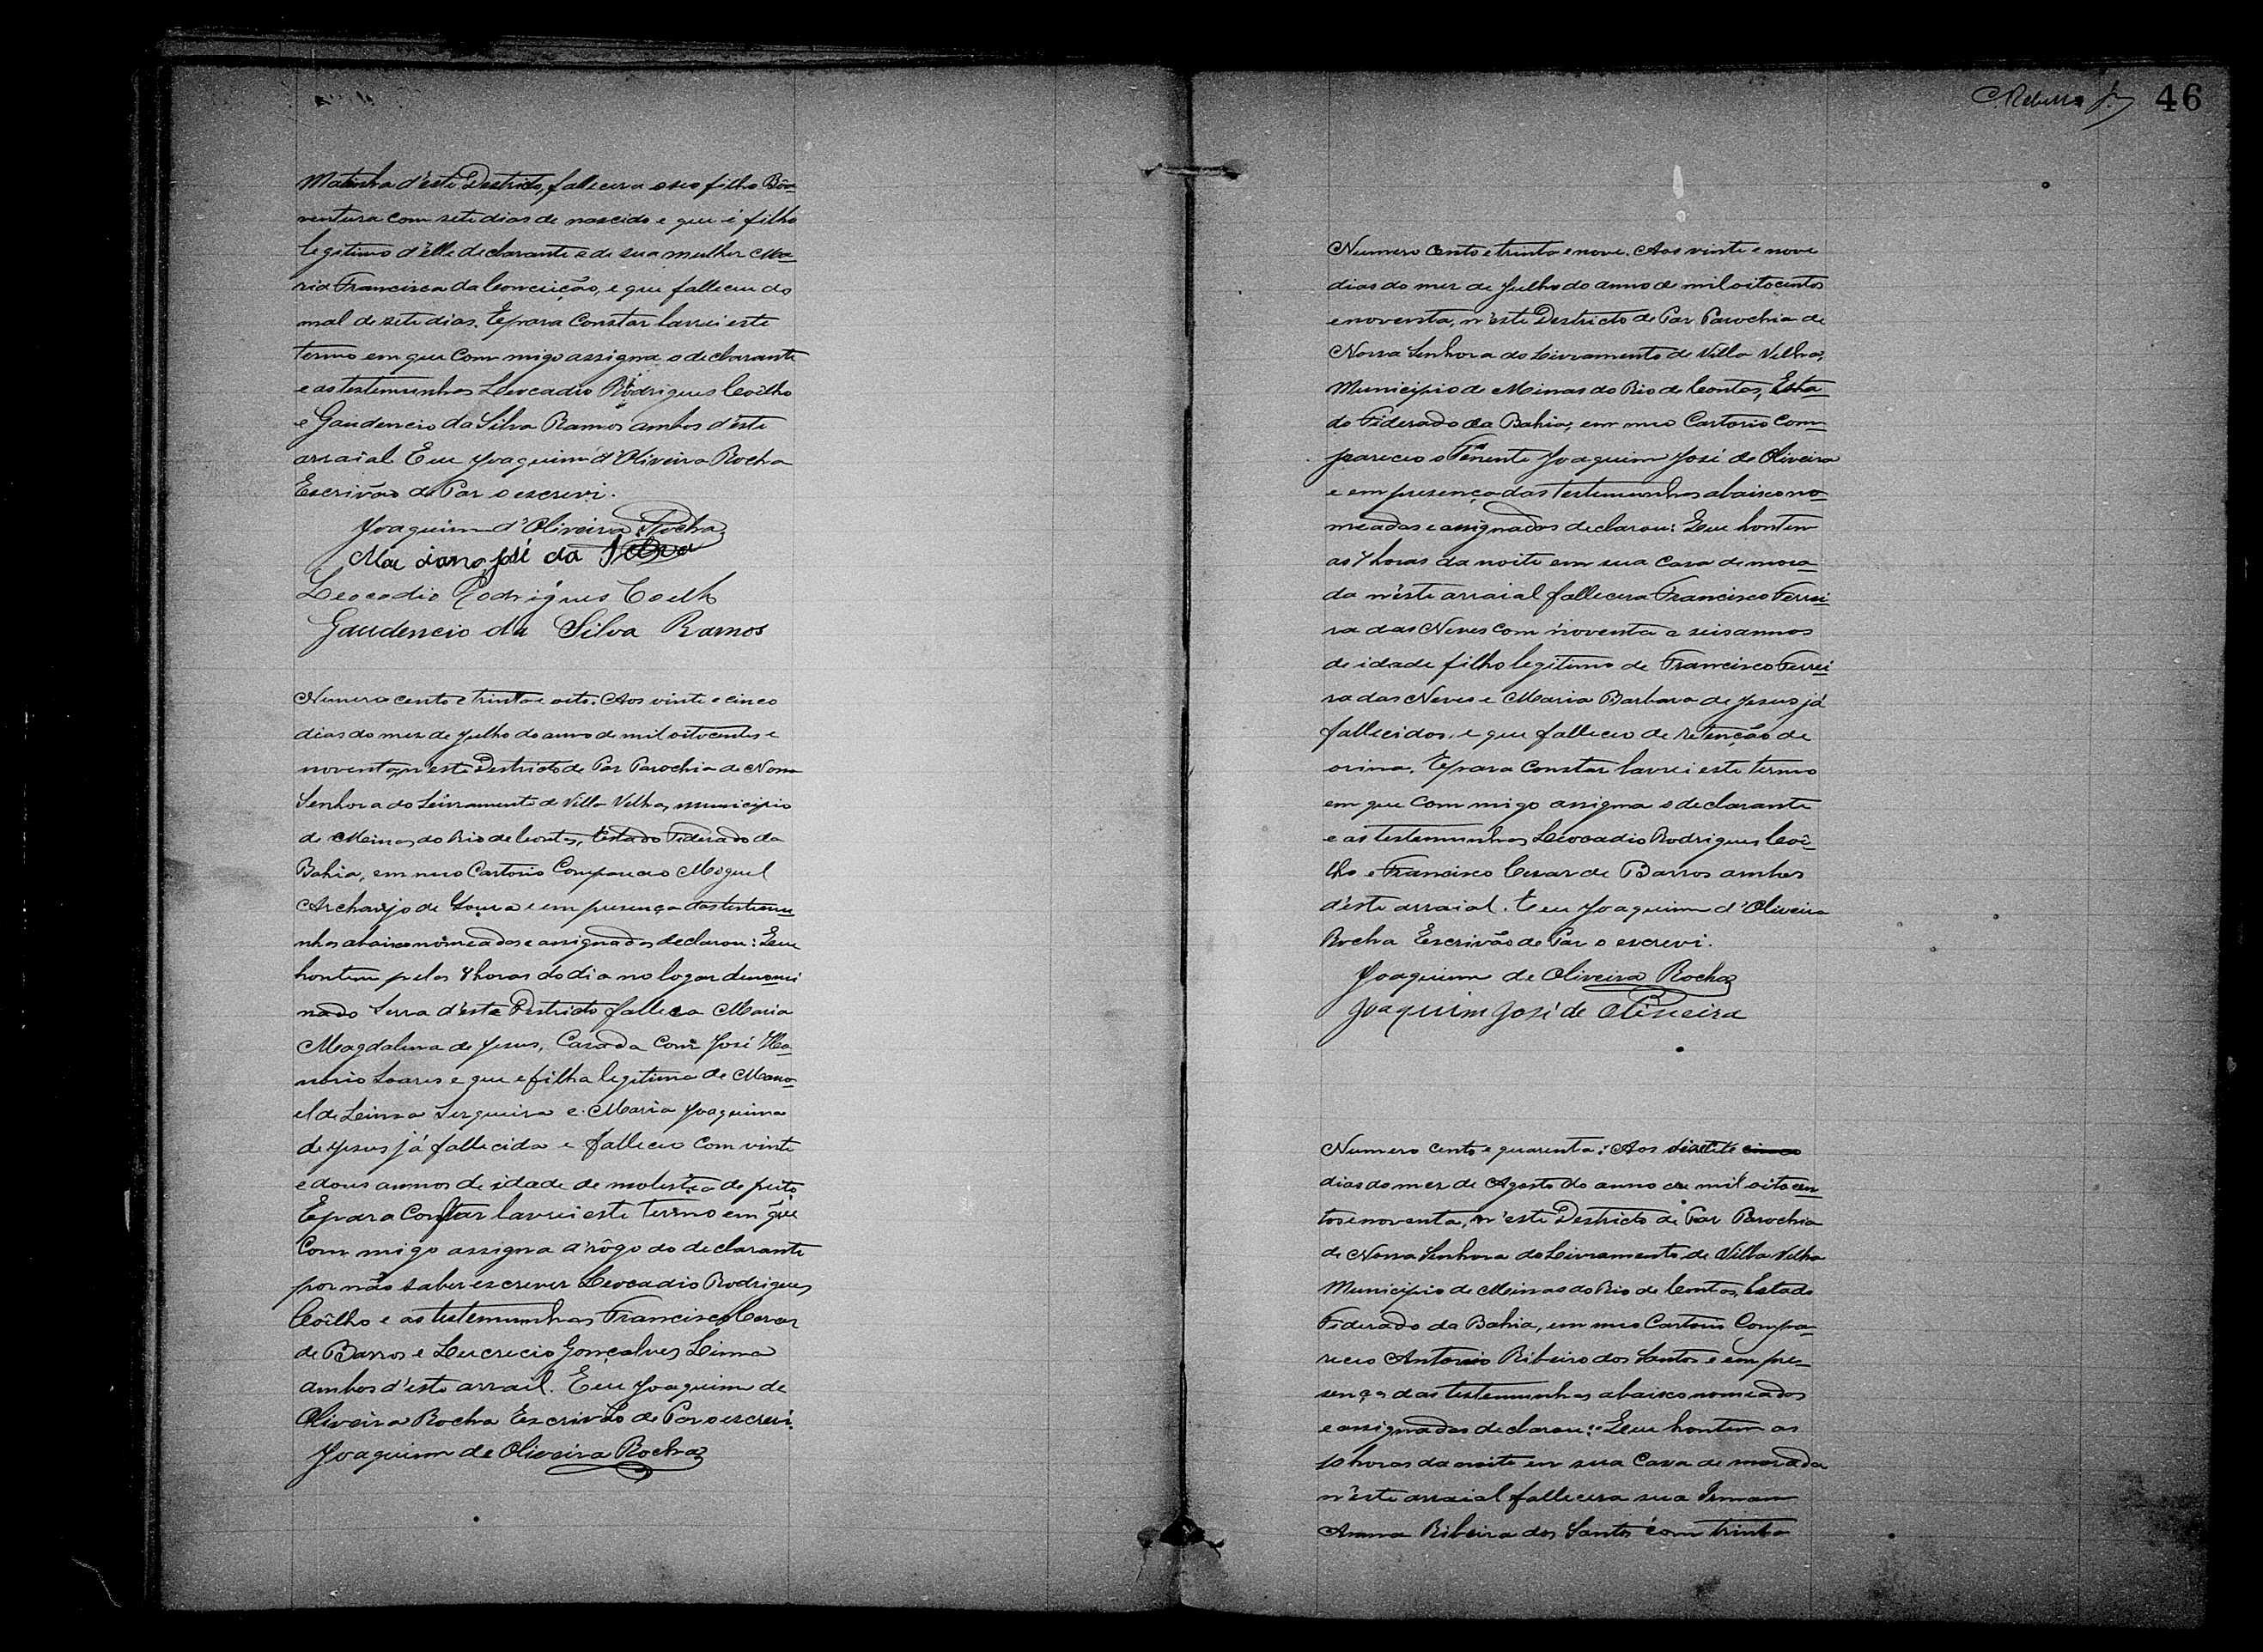 Matinha d'este Destricto, fallecera o seo filho Bôa
ventura com sete dias de nascido e que é filho
legitimo d'elle declarante e de sua mulher Ma-
ria Francisca da Conceição, e que falleceu do
mal de sete dias. E para Constar lavrei este
termo em que Commigo assigna o declarante
e as testemunhas Leocadio Rodrigues Coêlho
e Gaudencio da Silva Ramos ambos d'este
arraial Eu Joaquim d'Oliveira Rocha
Escrivão de Paz o escrevi.
Joaquim d'Oliveira Rocha
Marciano José da Silva
Leocadio Rodrigues Coelh
Gaudencio da Silva Ramos
Numero cento e trinta e oito. Aos vinte e cinco
dias do mez de Julho do anno de mil oitocentos e
noventa, n'este Destricto de Paz Parochia de Nossa
Senhora do Livramento de Villa Velha, municipio
de Minas do Rio de Contas, Estado Federado da
Bahia, em meo Cartorio Compareceo Miguel
Archanjo de e em presença das testemu
nhas abaixo nomeadas e assignados declarou: Que
hontem pelas 4 horas do dia no logar denomi
nado Serra d'este Destricto falleceo Maria
Magdalena de Jesus, Casada Com José Ho-
norio Soares e que e filha legitima de Mano-
el de Lima Serqueira e Maria Joaquina
de Jesus já fallecida e falleceo Com vinte
e dous annos de idade de molestia de peito
E para Constar lavrei este termo em que
Commigo assigna a'rôgo do declarante
por não saber escrever Leocadio Rodrigues
Coêlho e as testemunhas Francisco Cezar
de Barros e Lucrecio Gonçalves Lima
ambos d'este arrail. E eu Joaquim de
Oliveira Rocha Escrivão de Paz o escrevi.
Joaquim de Oliveira Rocha
46
Numero Cento e trinta e nove. Aos vinte e nove
dias do mez de Julho do anno de mil oitocentos
e noventa, n'este Destricto de Paz Parochia de
Nossa Senhora do Livramento de Villa Velha,
Municipio de Minas do Rio de Contas, Esta-
do Federado da Bahia, em meo Cartorio Com-
pareceo o Tenente Joaquim José de Oliveira
e em presença das testemunhas abaixo no-
meadas e assignados declarou: Que hontem
as 4 horas da noite em sua Casa de mora-
da n'este arraial fallecera Francisco Ferrei
ra das Neves Com noventa e seis annos
de idade filho legitimo de Francisco Ferrei
ra das Neves e Maria Barbara de Jesus já
fallecidos, e que falleceo de retenção de
orina. E para Constar lavrei este termo
em que Commigo assigna o declarante
e as testemunhas Leocadio Rodrigues Coê-
lho e Francisco Cezar de Barros ambos
d'este arraial. E eu Joaquim d'Oliveira
Rocha Escrivão de Paz o escrevi.
Joaquim de Oliveira Rocha
Joaquim José de Oliveira
Numero Cento e quarenta: Aos
dias do mez de Agosto do anno de mil oitocen
tos e noventa, n'este Destricto de Paz Parochia
de Nossa Senhora do Livramento de Villa Velha
Municipio de Minas do Rio de Contas, Estado
Federado da Bahia, em meo Cartorio Compa-
receo Antonio Ribeiro dos Santos e em pre-
sença das testemunhas abaixo nomeados
e assignadas declarou: Que hontem as
10 horas da noite em sua Casa de morada
n'este arraial fallecera sua Irman
Anna Ribeira dos Santos com trinta